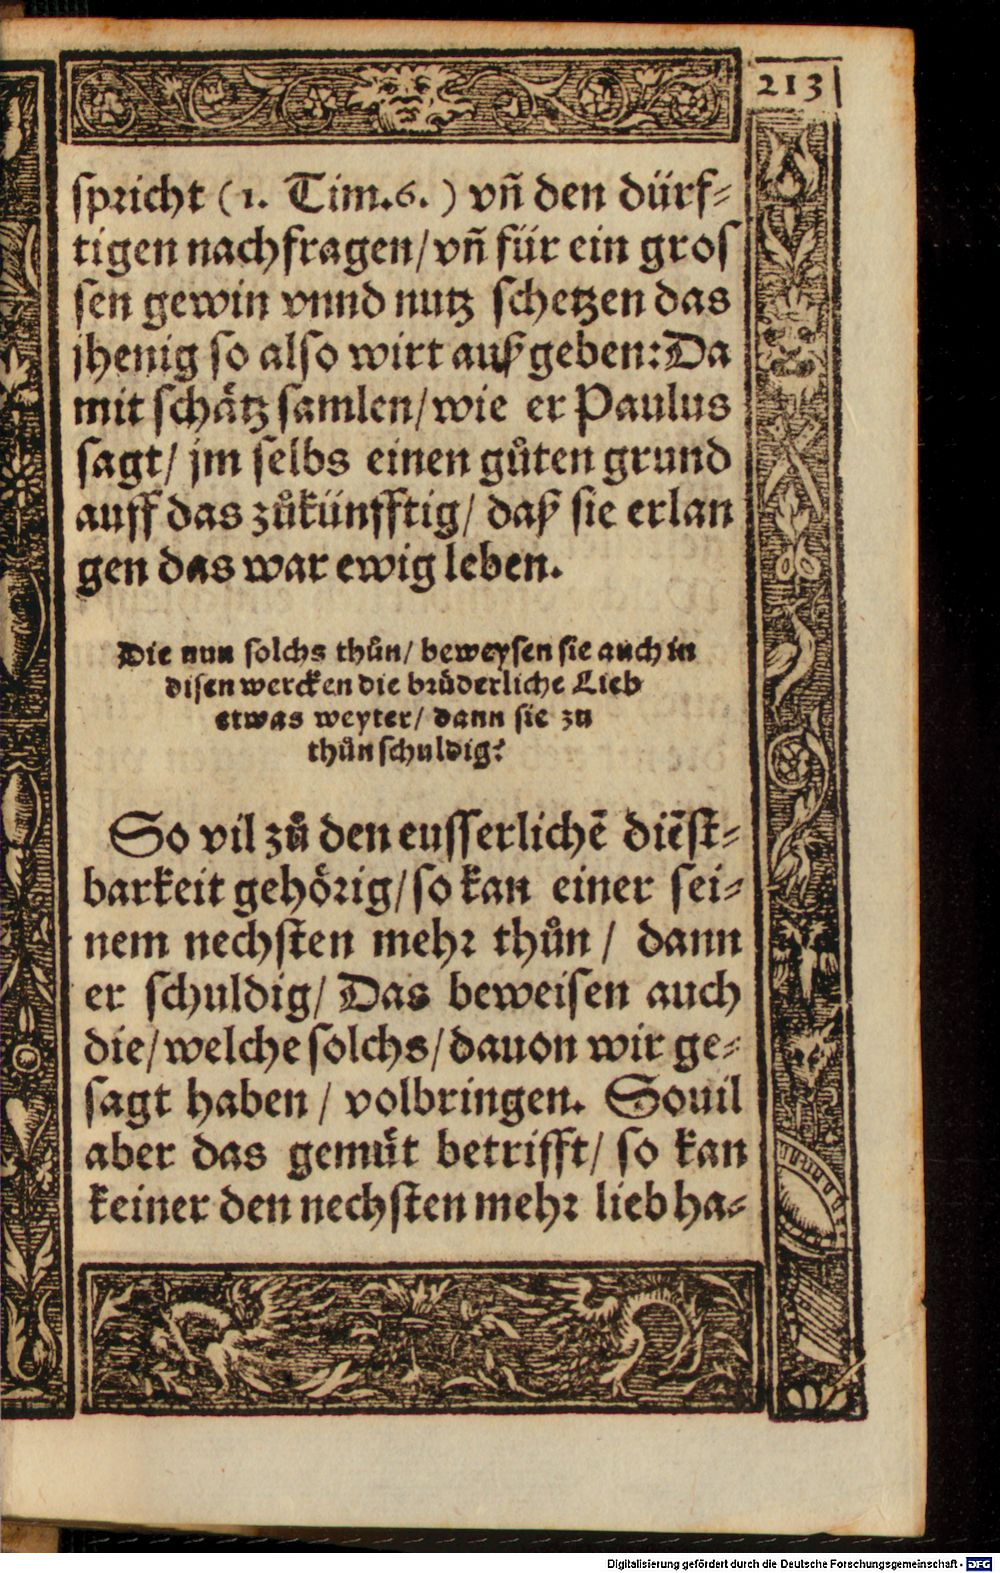 213
spricht (1. Tim.6.) vñ den dürf⸗
tigen nachfragen/ vñ für ein gros
sen gewin vnnd nutz schetzen das
jhenig so also wirt außgeben: Da
mit schätz samlen/ wie er Paulus
sagt/ jm selbs einen gůten grund
auff das zůkünfftig/ daß sie erlan
gen das war ewig leben.
Die nun solchs thůn/ beweysen sie auch in
disen wercken die brůderliche Lieb
etwas weyter/ dann sie zu
thůn schuldig?
So vil zů den eusserlichẽ diẽst⸗
barkeit gehörig/ so kan einer sei⸗
nem nechsten mehr thůn/ dann
er schuldig/ Das beweisen auch
die/ welche solchs/ dauon wir ge⸗
sagt haben/ volbringen. Souil
aber das gemüt betrifft/ so kan
keiner den nechsten mehr lieb ha⸗
Digitalisierung gefördert durch die Deutsche Forschungsgemeinschaft - DFG